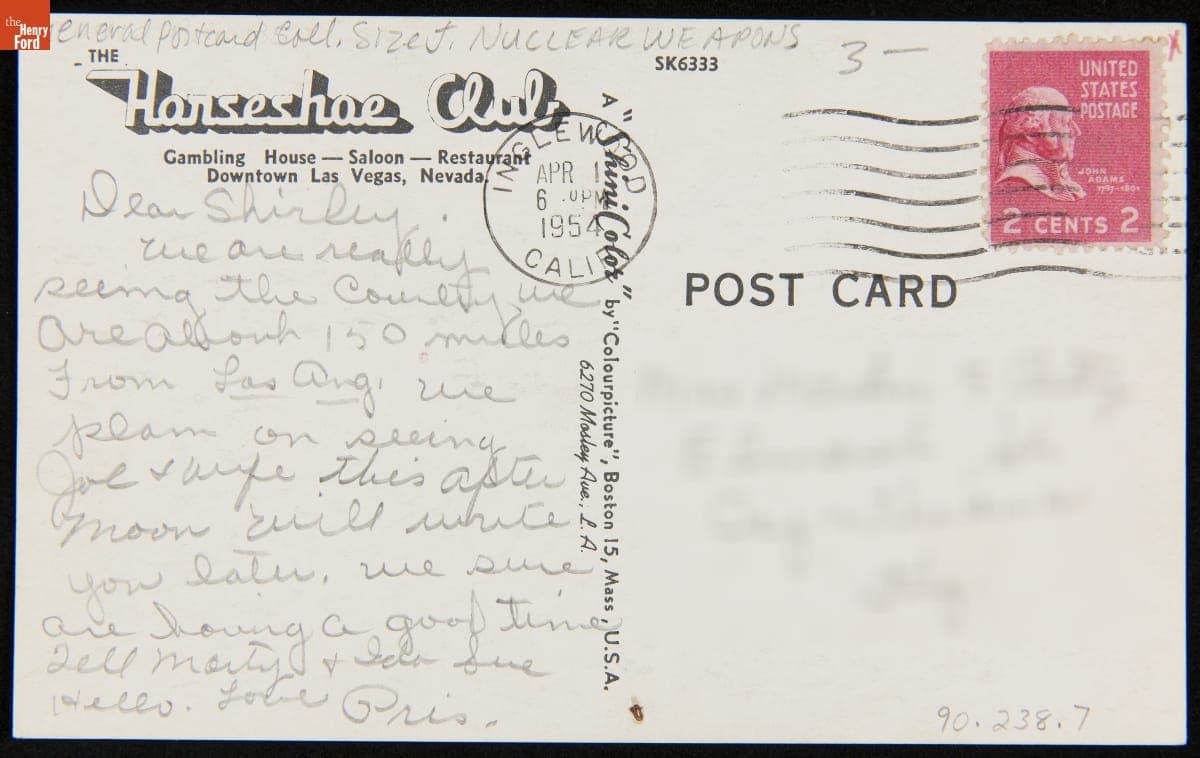 the
Henry
Ford
General Postcard Coll. Size J NUCLEAR WEAPONS
3 —
THE
Horseshoe Club
Gambling House — Saloon — Restaurant
Downtown Las Vegas, Nevada.
SK6333
Dear Shirley.
we are really
seeing the Country we
are about 150 miles
From Las Ang. we
plan on seeing
Joe & wife this after
noon will write
you later. we sure
are having a good time
Tell Marty & Ida Sue
Hello. Love Pris.
INGLEWOOD
APR 1
6 PM
1954
CALIF.
A "ShiniColor" by "Colourpicture", Boston 15, Mass., U.S.A.
6270 Mosley Ave., L. A.
UNITED
STATES
POSTAGE
JOHN
ADAMS
1797-1801
2 CENTS 2
POST CARD
90.238.7